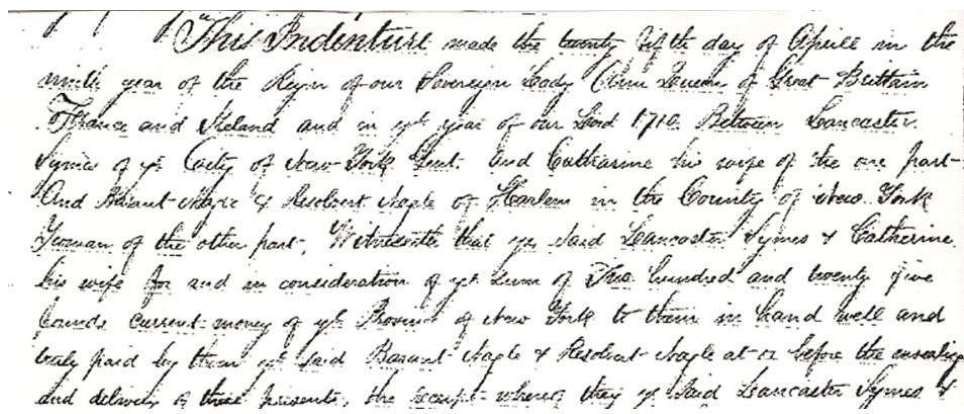 This Indenture made the twenty fifth day of Aprill in the
ninth year of the Reign of our Sovereign Lady Ann Queen of Great Brittain
France and Ireland and in ye year of our Lord 1710. Between Lancaster
Symes of ye Citty of New York Gent. and Catharine his wife of the one part
And Barant Nagle & Resolvert Nagle of Harlem in the County of New York
Yeoman of the other part, Witnesseth that ye said Lancaster Symes & Catherine
his wife for and in consideration of ye sum of Two hundred and twenty five
pounds current money of ye Province of New York to them in hand well and
truly paid by them ye said Barant Nagle & Resolvert Nagle at or before the ensealing
and delivery of these presents, the receipt whereof they ye said Lancaster Symes &